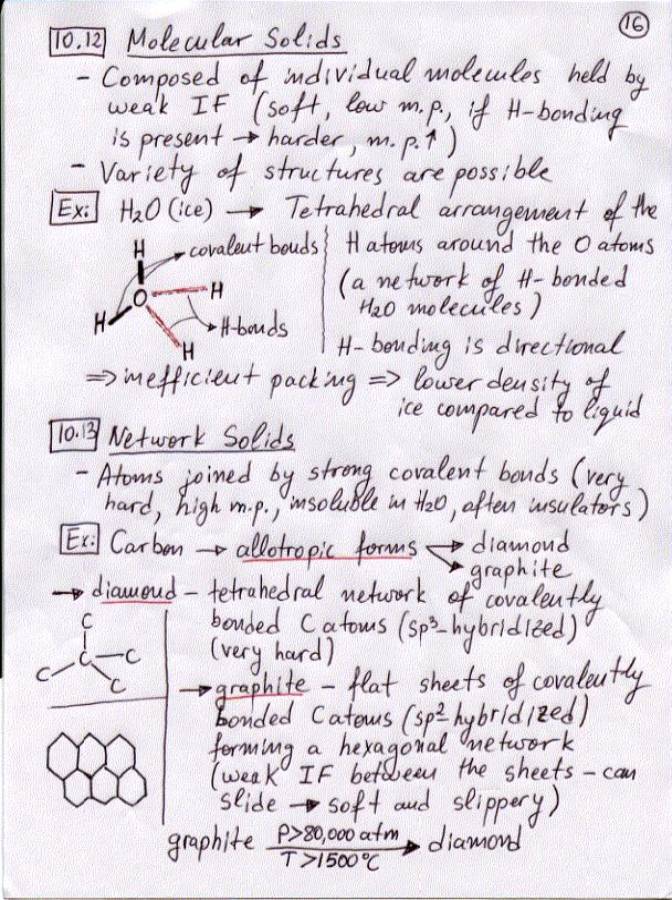 16
10.12 Molecular Solids
- Composed of individual molecules held by
weak IF (soft, low m.p., if H-bonding
is present → harder, m.p.↑)
- Variety of structures are possible
Ex: H₂O (ice) → Tetrahedral arrangement of the
H atoms around the O atoms
(a network of H-bonded
H₂O molecules)
H-bonding is directional
H
covalent bonds
O
H
H
H-bonds
H
⇒ inefficient packing ⇒ lower density of
ice compared to liquid
10.13 Network Solids
- Atoms joined by strong covalent bonds (very
hard, high m.p., insoluble in H₂O, often insulators)
Ex: Carbon → allotropic forms → diamond
→ graphite
→ diamond – tetrahedral network of covalently
bonded C atoms (sp³-hybridized)
(very hard)
C
C
C
C
C
→ graphite – flat sheets of covalently
bonded C atoms (sp² hybridized)
forming a hexagonal network
(weak IF between the sheets – can
slide → soft and slippery)
graphite P>80,000 atm → diamond
T>1500°C